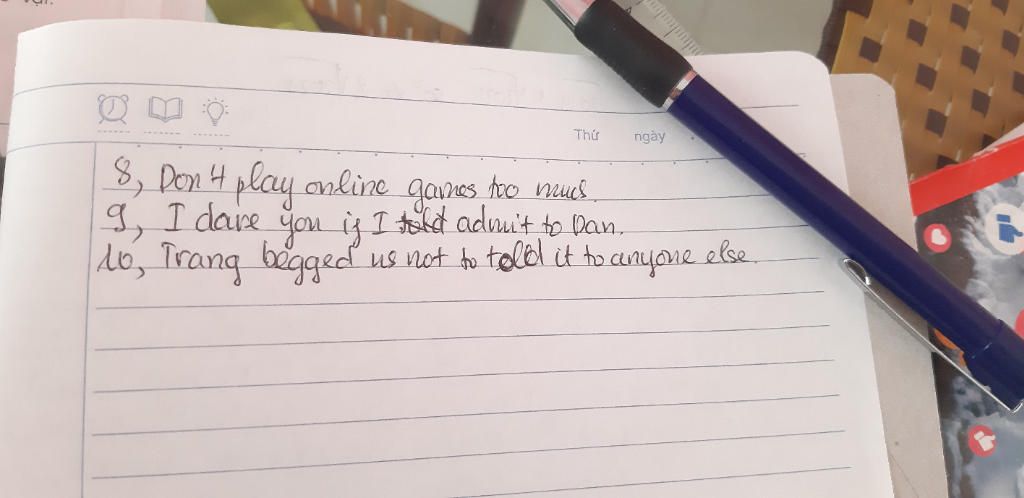 Thứ ngày
8, Don't play online games too much.
9, I dare you if I told admit to Dan.
10, Trang begged us not to told it to anyone else.